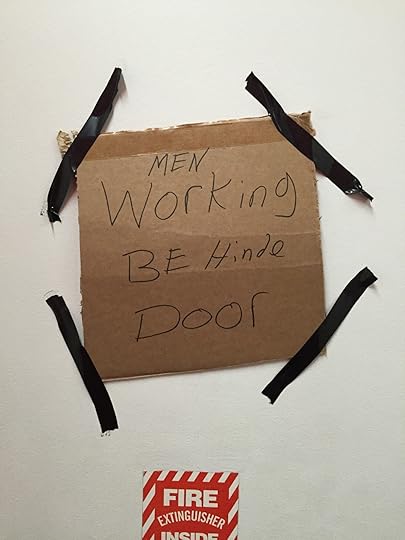 MEN
Working
BE Hinde
Door
FIRE
EXTINGUISHER
INSIDE